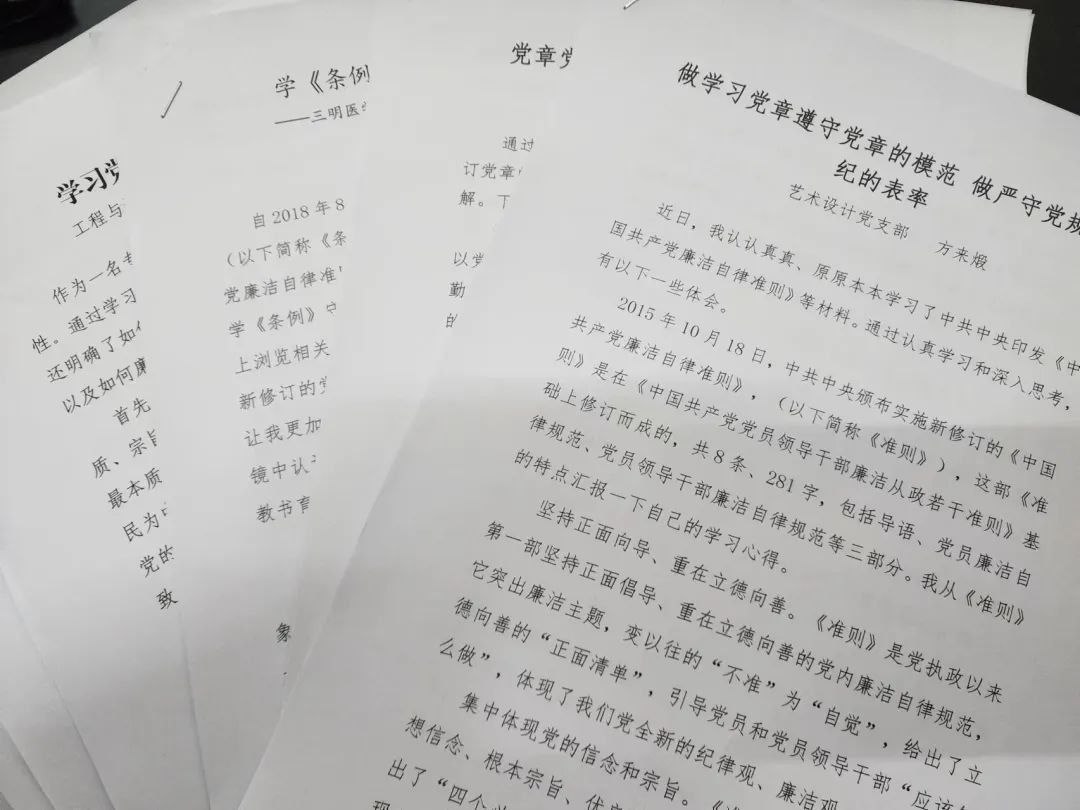 学习党
工程与
作为一名
性。通过学习
还明确了如
以及如何廉
首先
质、宗旨
最本质
民为
党的
致
学《条例
——三明医
自 2018 年 8
（以下简称《条
党廉洁自律准
学《条例》
上浏览相关
新修订的党
让我更加
镜中认
教书育
象
党章党
通过
订党章
解。下
以党
勤
的
做学习党章遵守党章的模范 做严守党规
纪的表率
艺术设计党支部 方来煅
近日，我认认真真、原原本本学习了中共中央印发《中
国共产党廉洁自律准则》等材料。通过认真学习和深入思考，
有以下一些体会。
2015 年 10 月 18 日，中共中央颁布实施新修订的《中国
共产党廉洁自律准则》，（以下简称《准则》），这部《准
则》是在《中国共产党党员领导干部廉洁从政若干准则》基
础上修订而成的，共 8 条、281 字，包括导语、党员廉洁自
律规范、党员领导干部廉洁自律规范等三部分。我从《准则》
的特点汇报一下自己的学习心得。
坚持正面向导、重在立德向善。《准则》是党执政以来
第一部坚持正面倡导、重在立德向善的党内廉洁自律规范，
它突出廉洁主题，变以往的“不准”为“自觉”，给出了立
德向善的“正面清单”，引导党员和党员领导干部“应该
么做”，体现了我们党全新的纪律观、廉洁观
集中体现党的信念和宗旨。《准
想信念、根本宗旨、优
出了“四个
现